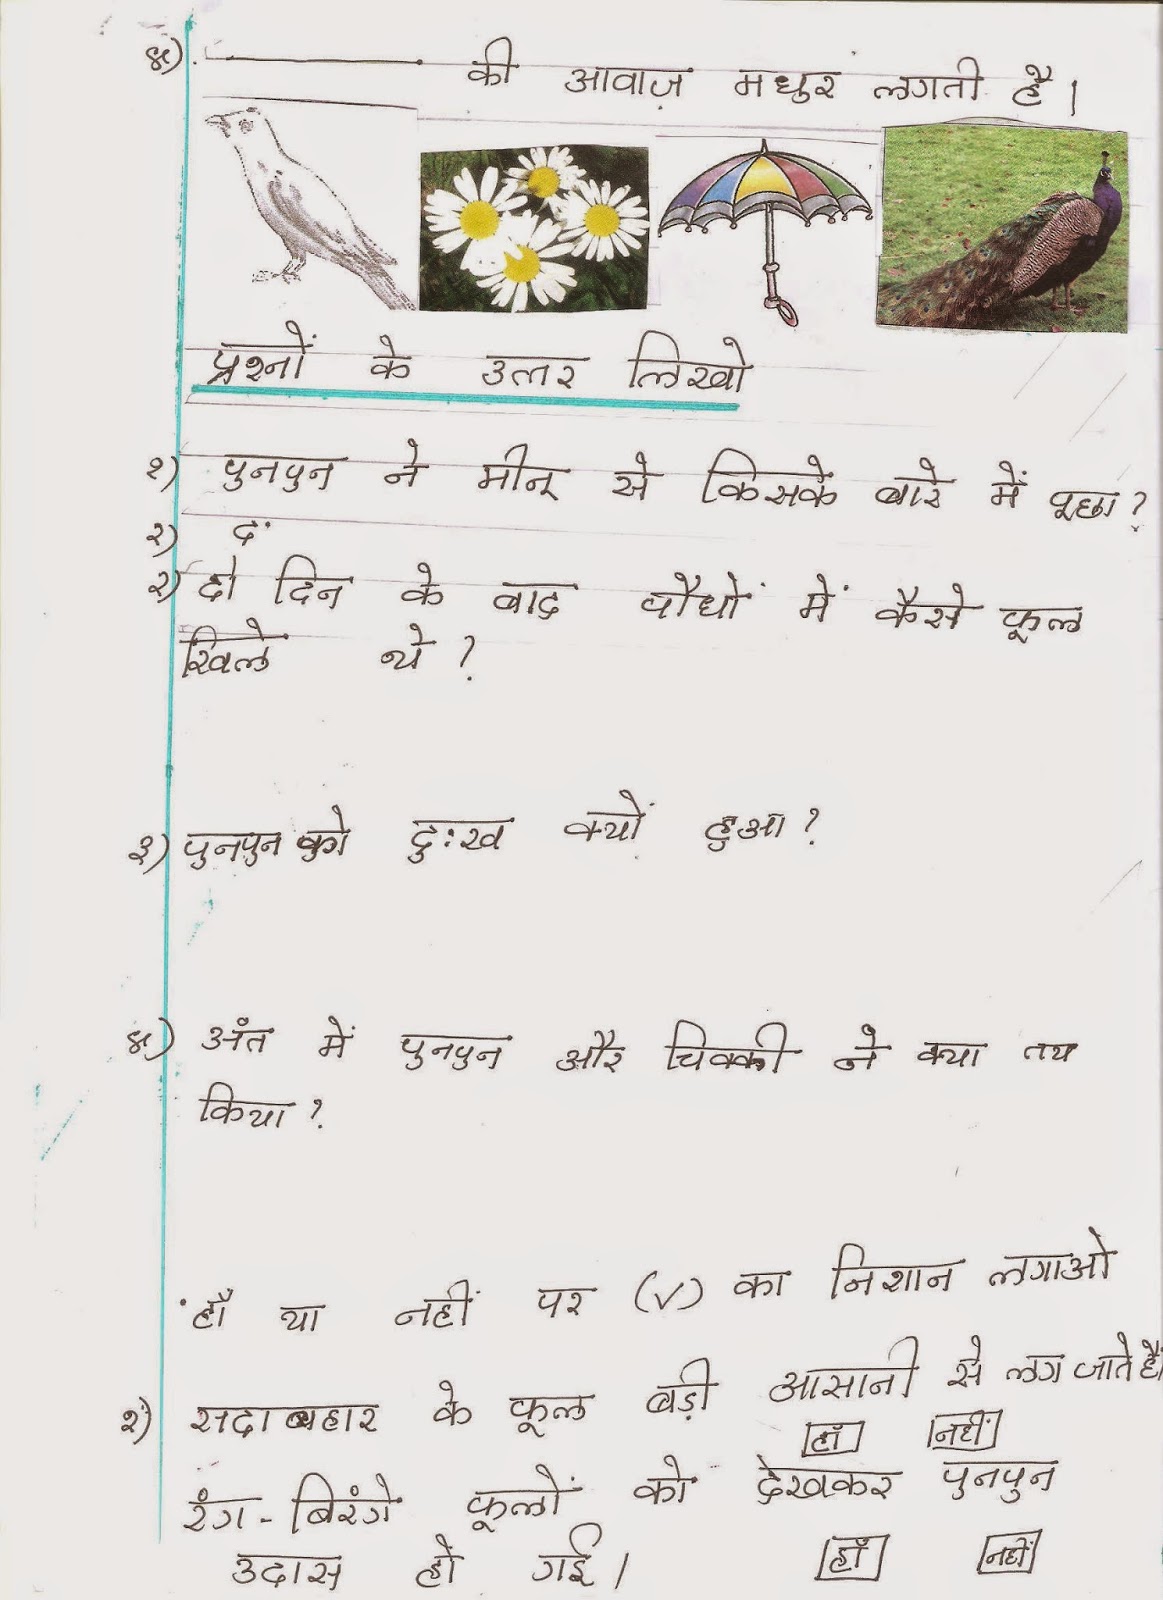 ४) ________ की आवाज़ मधुर लगती है।
प्रश्नों के उत्तर लिखो
१) पुनपुन ने मीनू से किसके बारे में पूछा?
२) द
२) दो दिन के बाद पौधों में कैसे फूल
खिले थे?
३) पुनपुन को दुःख क्यों हुआ?
४) अंत में पुनपुन और चिक्की ने क्या तय
किया?
हाँ या नहीं पर (√) का निशान लगाओ
१) सदाबहार के फूल बड़ी आसानी से लग जाते हैं।
हाँ नहीं
रंग-बिरंगे फूलों को देखकर पुनपुन
उदास हो गई। हाँ नहीं